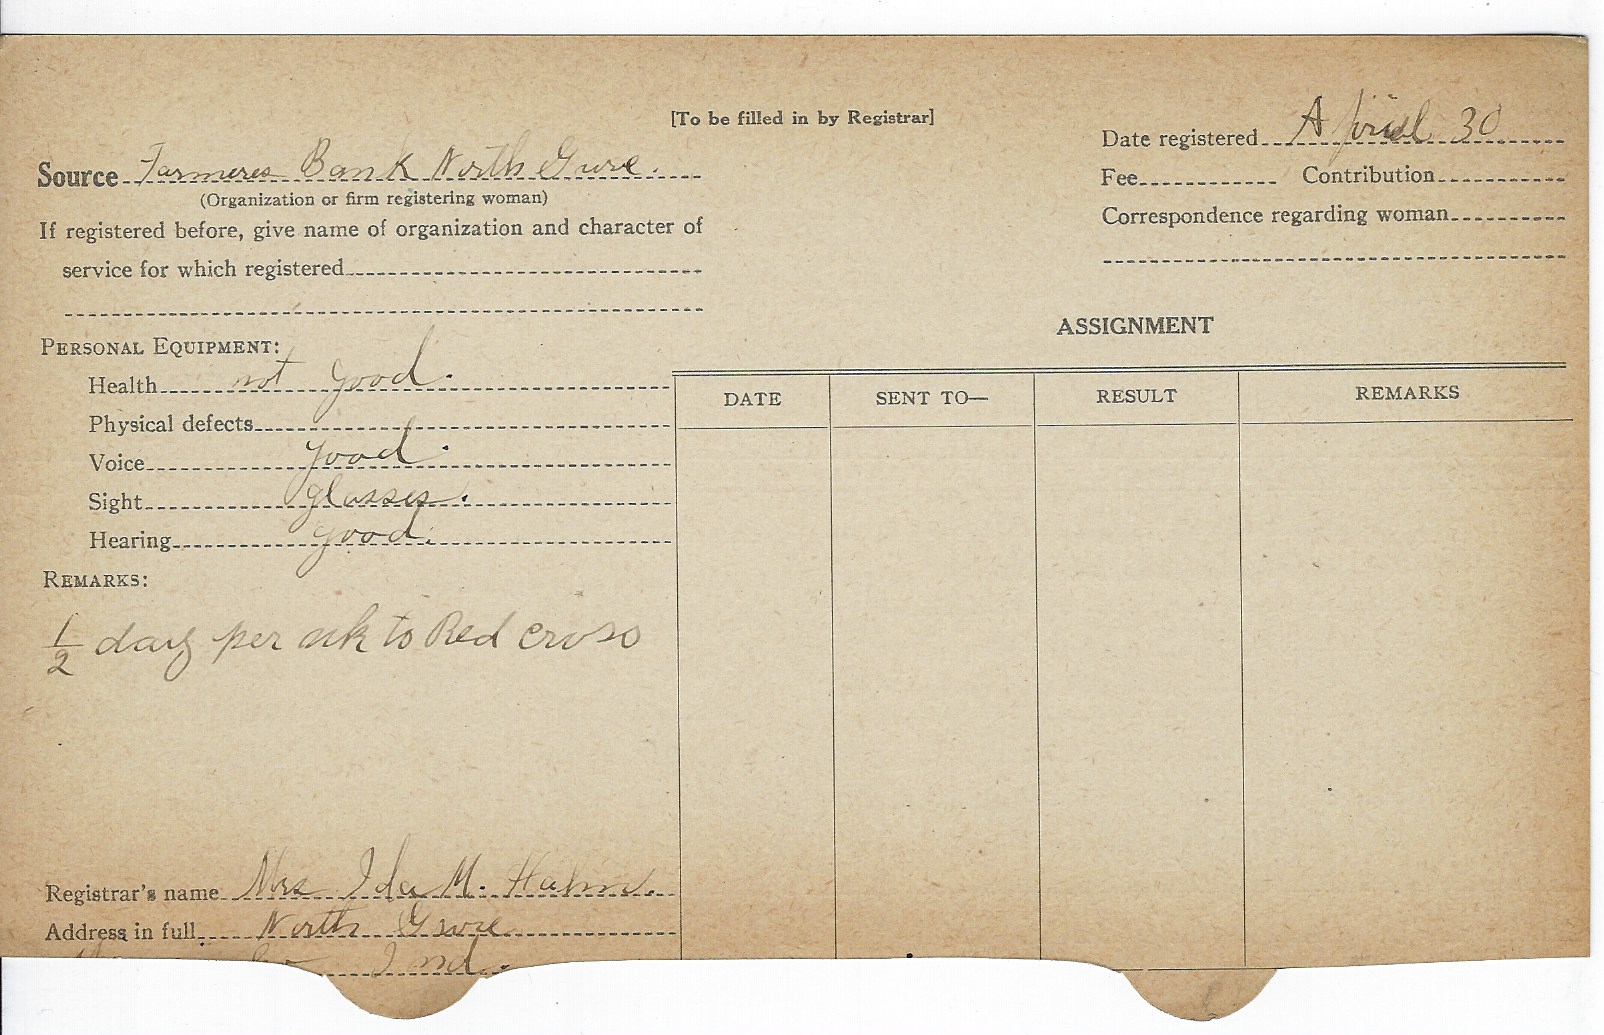 [To be filled in by Registrar]
Date registered April 30
Source Farmeres Bank North Grove.
(Organization or firm registering woman)
Fee Contribution
Correspondence regarding woman
If registered before, give name of organization and character of
service for which registered
ASSIGNMENT
PERSONAL EQUIPMENT:
Health not good.
Physical defects
Voice good.
Sight glasses.
Hearing good.
DATE SENT TO— RESULT REMARKS
REMARKS:
1/2 day per wk to Red Cross
Registrar's name Mrs Ida M. Hahn.
Address in full North Grove
Co Ind.